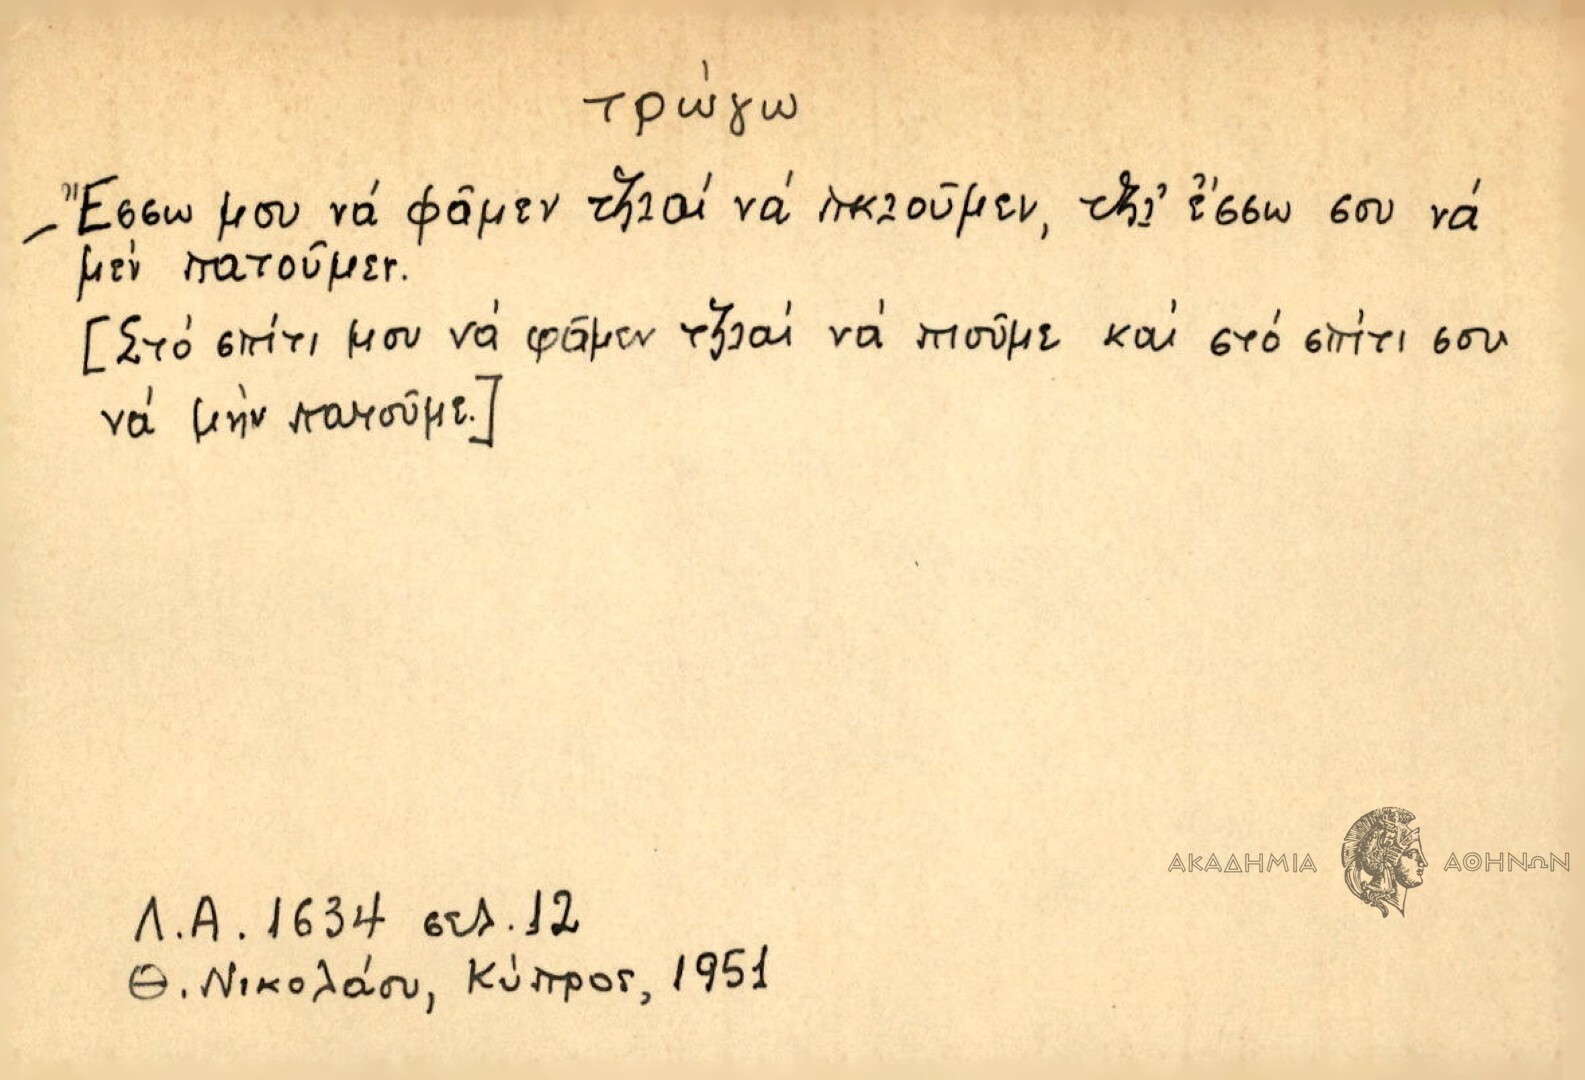 τρώγω
– Ἔσσω μου νά φᾶμεν τζ̌ιαί νά πκιοῦμεν, τζ̌ι' ἔσσω σου νά
μέν πατοῦμεν.
[Στό σπίτι μου νά φᾶμεν τζ̌ιαί νά πιοῦμε καί στό σπίτι σου
νά μήν πατοῦμε.]
ΑΚΑΔΗΜΙΑ ΑΘΗΝΩΝ
Λ.Α. 1634 σελ. 12
Θ. Νικολάου, Κύπρος, 1951